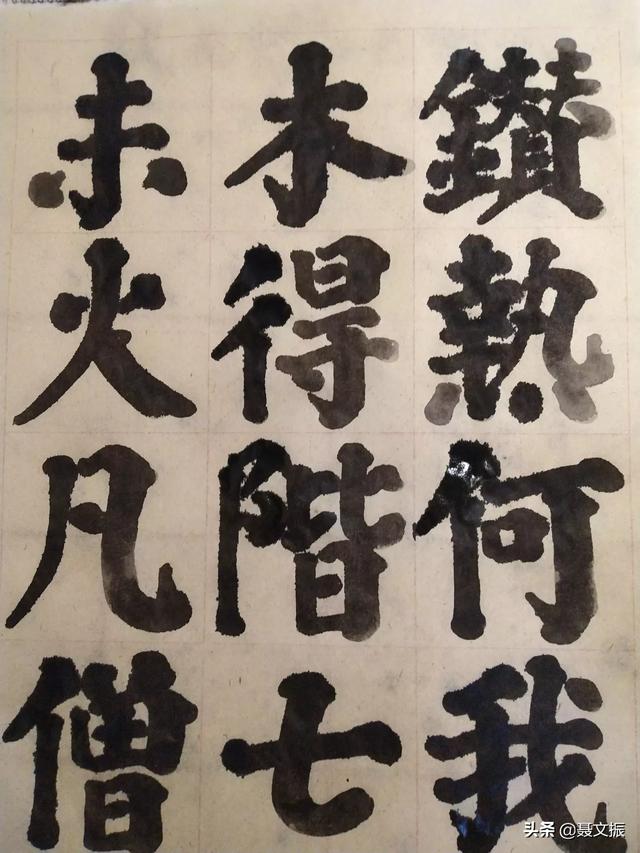 鑽熱何我
木得階七
未火凡僧
头条 @聂文振